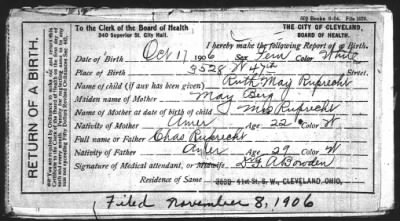 400 Books 9-04. File 1038.
To the Clerk of the Board of Health
240 Superior St. City Hall.
THE CITY OF CLEVELAND,
BOARD OF HEALTH.
I hereby make the following Report of a Birth.
RETURN OF A BIRTH.
Date of Birth Oct 17 1906 Sex Fem Color White
Place of Birth 9528 W 47th Street.
Name of child (if any has been given) Ruth May Ruprecht
Maiden name of Mother May Berg
Name of Mother at date of birth of child Mrs Ruprecht
Nativity of Mother Amer Age 22 Color W
Full name or Father Chas Ruprecht
Nativity of Father Amer Age 29 Color W
Signature of Medical attendant, or Midwife A Bowden
Residence of Same 41st St. S. W., CLEVELAND, OHIO.
Filed November 8, 1906